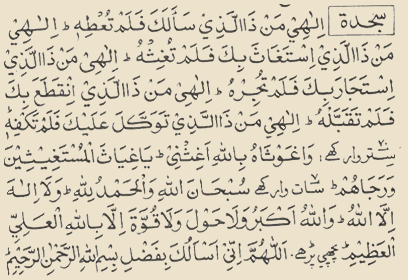 سجدة اِلٰهِيْ مَنْ ذَا الَّذِيْ سَاَلَكَ فَلَمْ تُعْطِهٖ ۔ اِلٰهِيْ
مَنْ ذَا الَّذِيْ اِسْتَغَاثَ بِكَ فَلَمْ تُغِثْهُ ۔ اِلٰهِيْ مَنْ ذَا الَّذِيْ
اسْتَجَارَ بِكَ فَلَمْ تُجِرْهُ ۔ اِلٰهِيْ مَنْ ذَا الَّذِيْ اِنْقَطَعَ بِكَ
فَلَمْ تَقَبَّلْهُ ۔ اِلٰهِيْ مَنْ ذَا الَّذِيْ تَوَكَّلَ عَلَيْكَ فَلَمْ تَكْفِهٖ ۔
ستّر وار كهے: وَاغَوْثَاهُ بِاللهِ اَغِثْنِيْ ۔ يَاغِيَاثَ الْمُسْتَغِيْثِيْنَ
وَرَجَاهُمْ ۔ سات وار كهے سُبْحَانَ اللهِ وَالْحَمْدُ لِلّٰهِ ۔ وَلَا اِلٰهَ
اِلَّا اللهُ ۔ وَاللهُ اَكْبَرُ وَلَا حَوْلَ وَلَا قُوَّةَ اِلَّا بِاللهِ الْعَلِيِّ
الْعَظِيْمِ ۔ پچهي پڑهے. اَللّٰهُمَّ اِنِّيْ اَسْاَلُكَ بِفَضْلِ بِسْمِ اللهِ الرَّحْمٰنِ الرَّحِيْمِ ۔